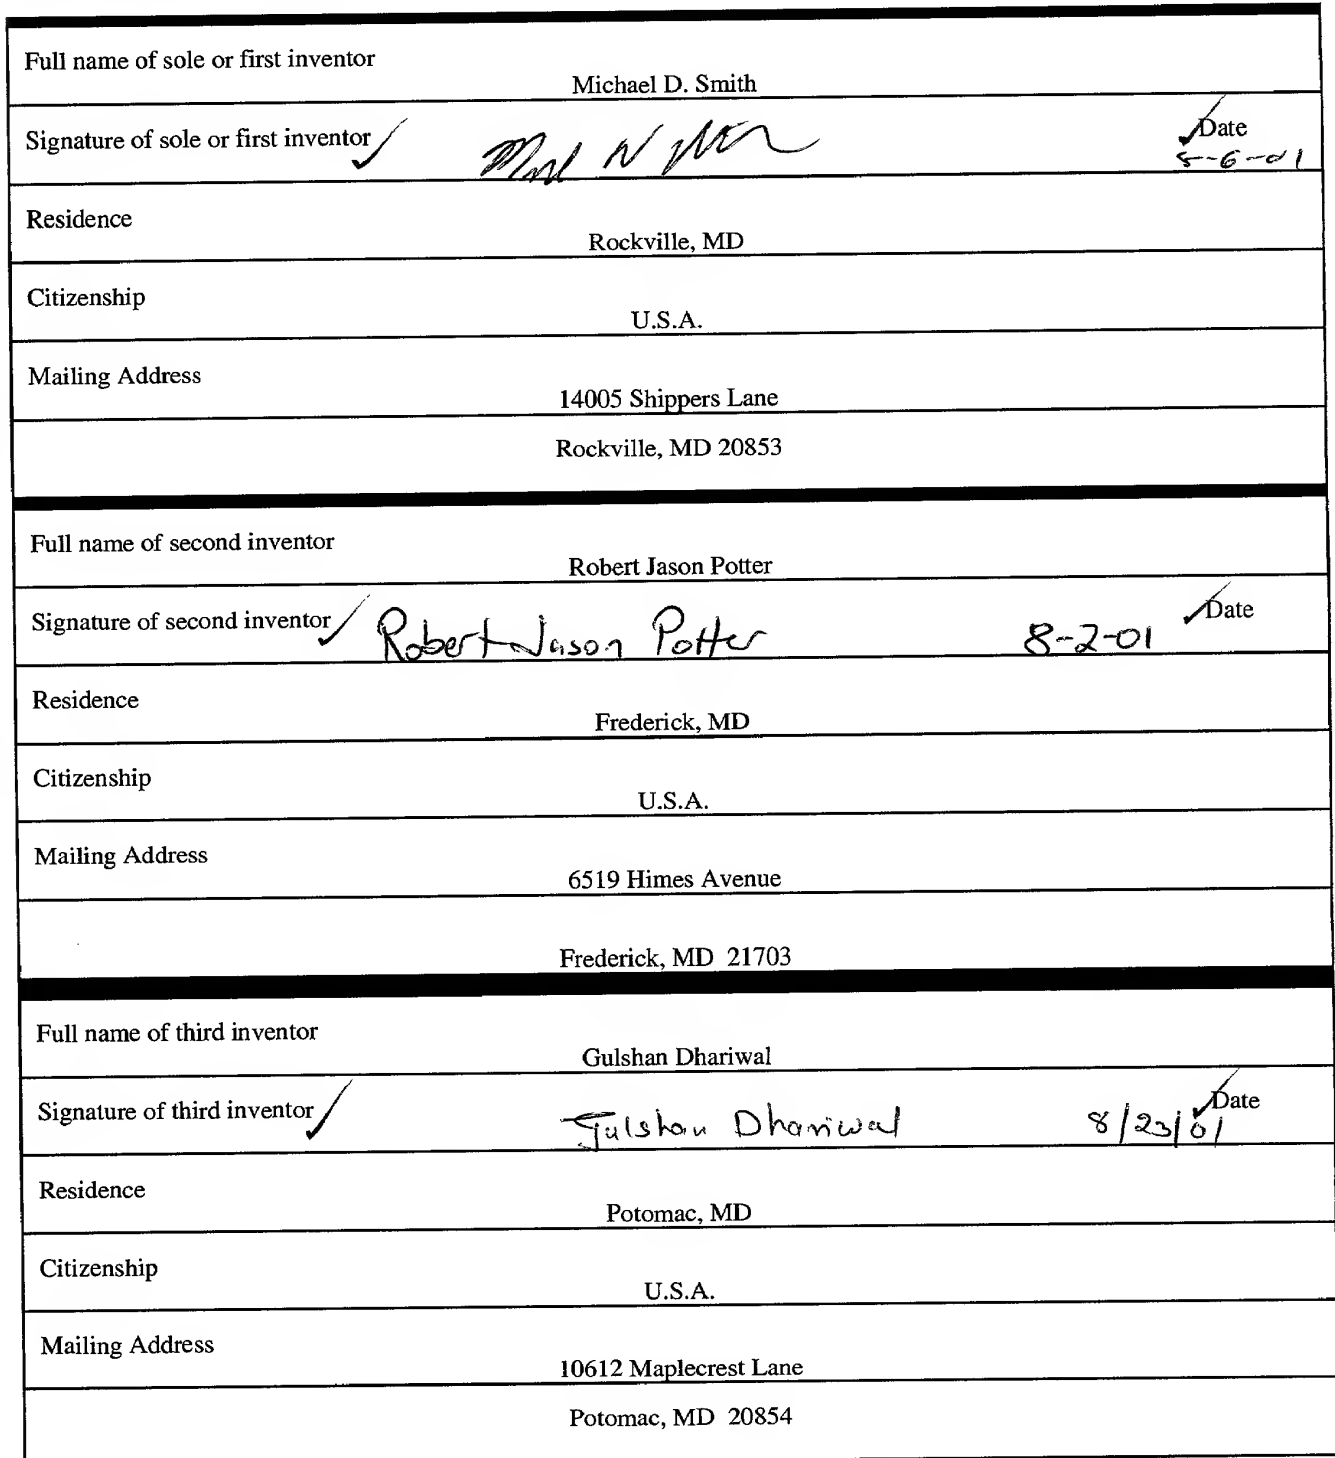 Full name of sole or first inventor
Michael D. Smith
Signature of sole or first inventor
Date
-6-01
Residence
Rockville, MD
Citizenship
U.S.A.
Mailing Address
14005 Shippers Lane
Rockville, MD 20853
Full name of second inventor
Robert Jason Potter
Signature of second inventor Robert Jason Potter 8-2-01 Date
Residence
Frederick, MD
Citizenship
U.S.A.
Mailing Address
6519 Himes Avenue
Frederick, MD 21703
Full name of third inventor
Gulshan Dhariwal
Signature of third inventor Gulshan Dhariwal 8/23/01 Date
Residence
Potomac, MD
Citizenship
U.S.A.
Mailing Address
10612 Maplecrest Lane
Potomac, MD 20854